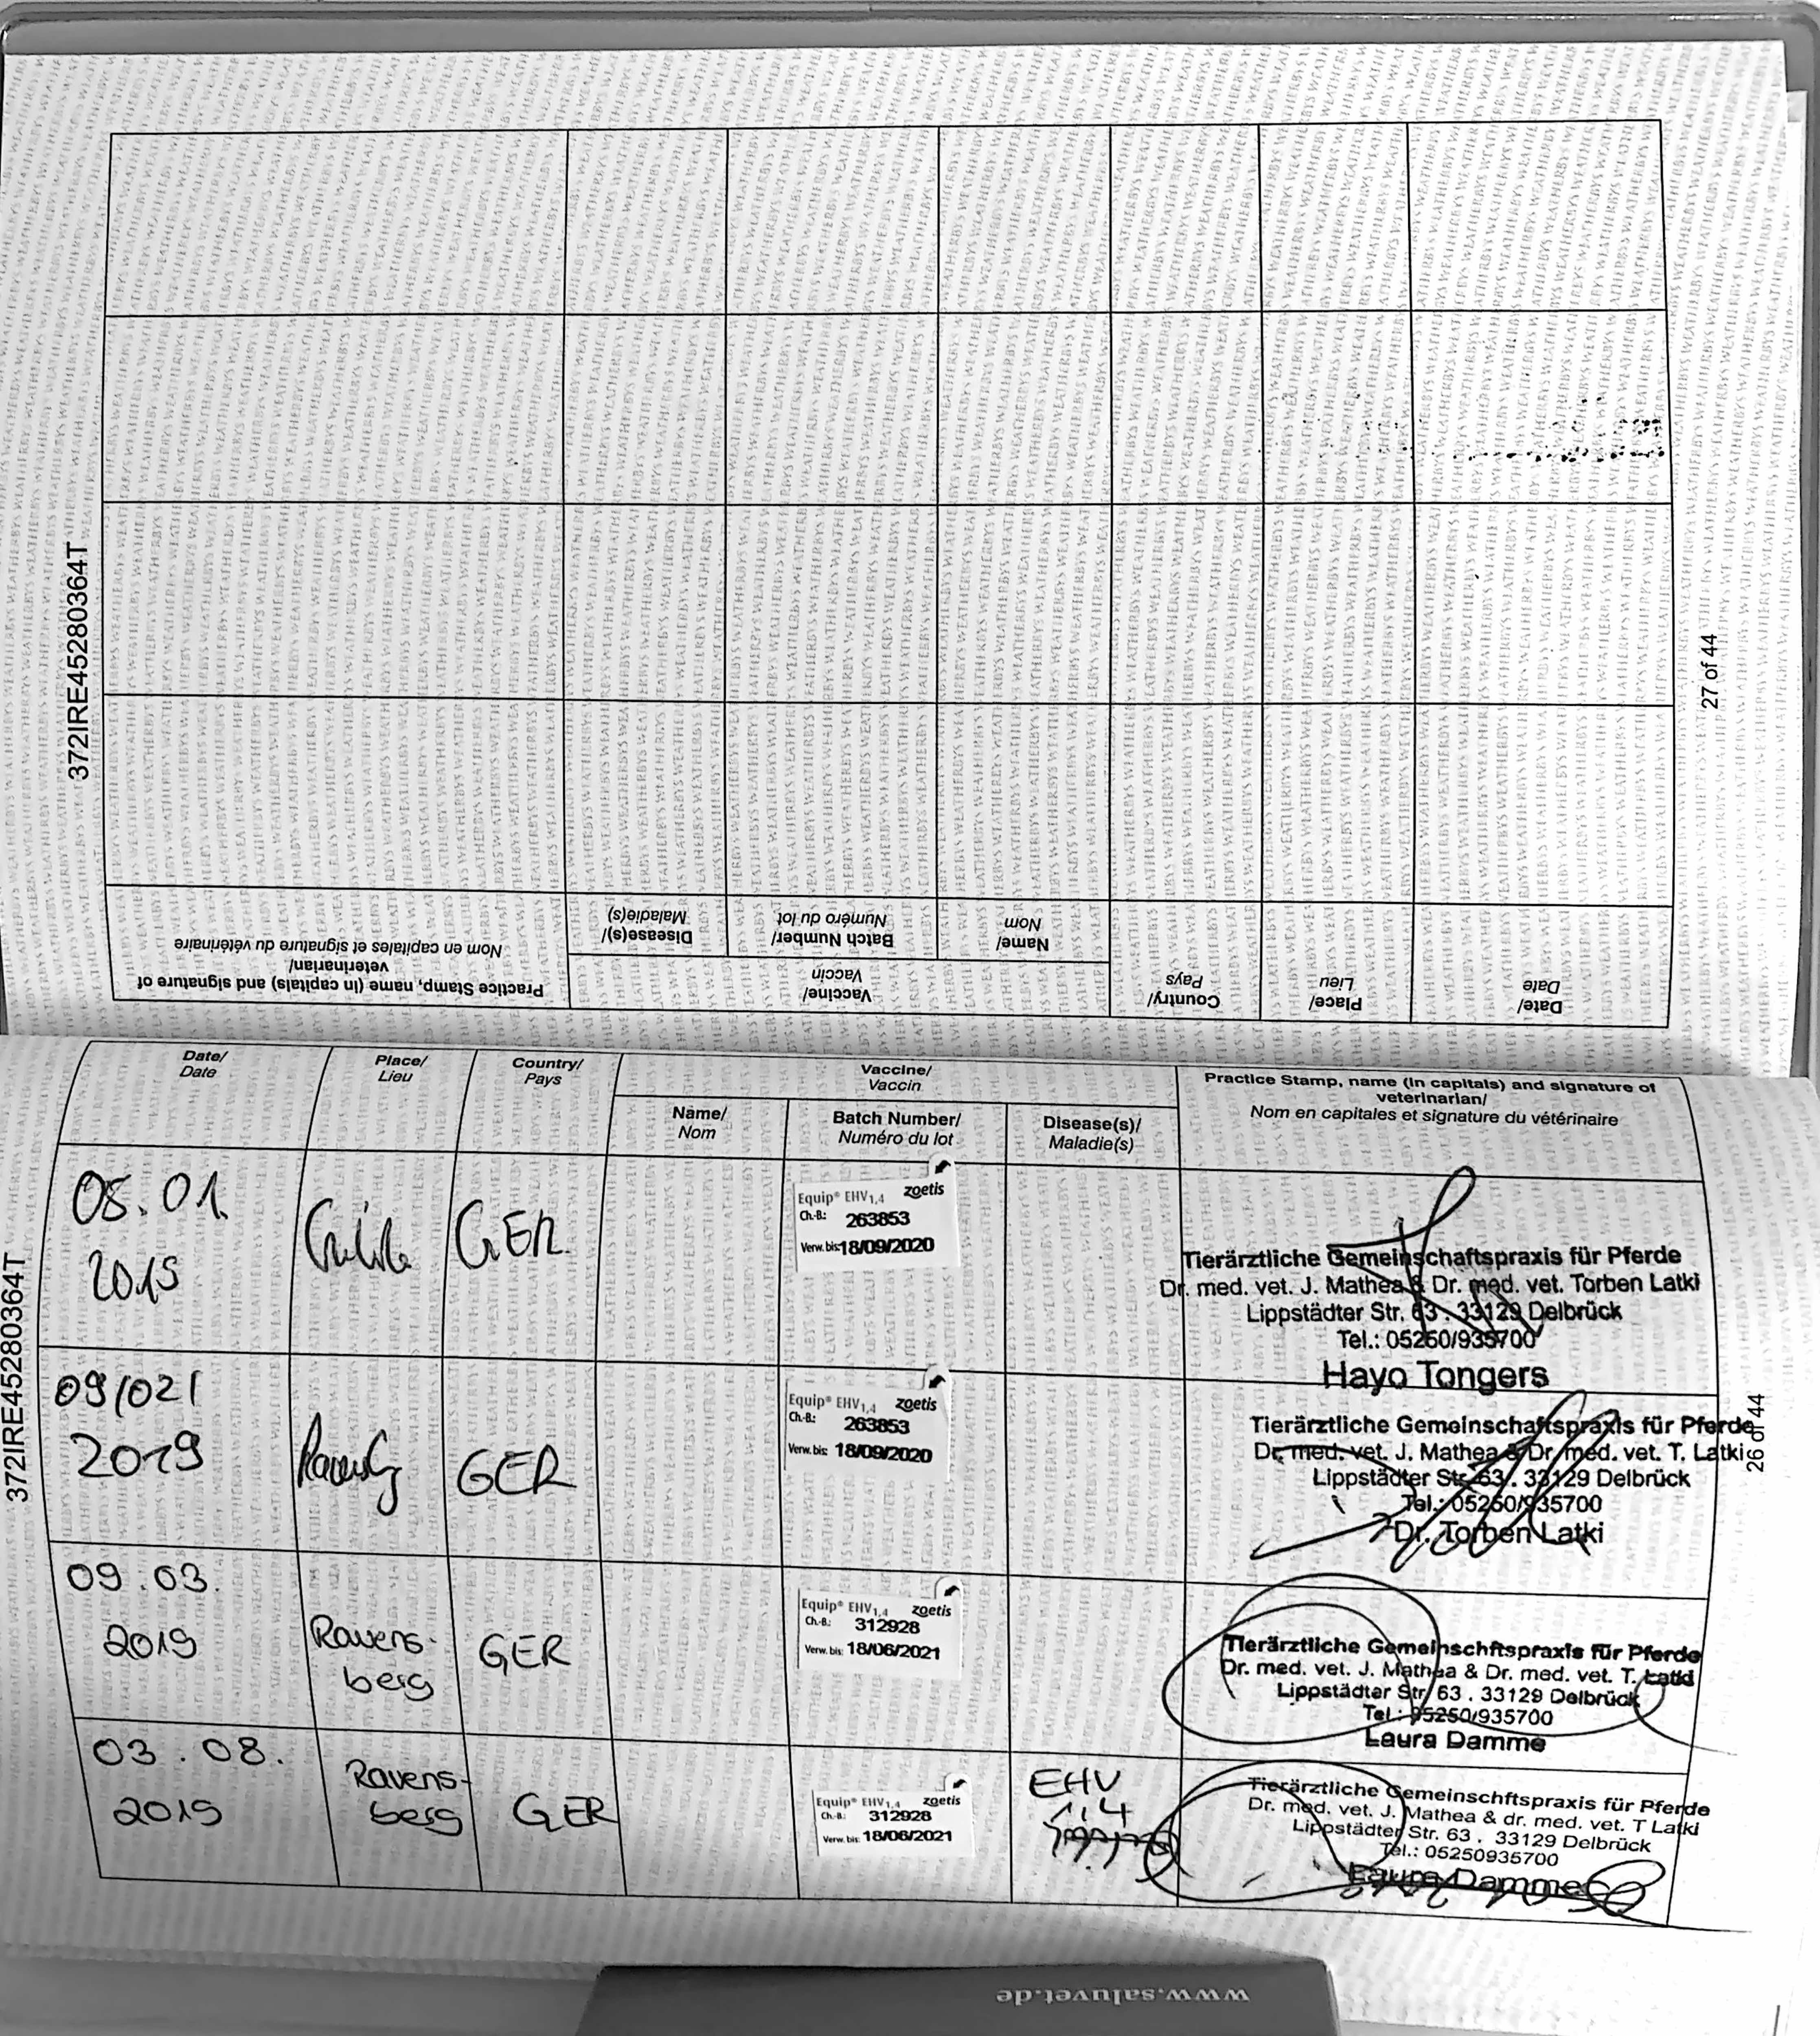 372IRE45280364T
27 of 44
Practice Stamp, name (in capitals) and signature of
veterinarian/
Nom en capitales et signature du vétérinaire
Vaccine/
Vaccin
Disease(s)/
Maladie(s)
Batch Number/
Numéro du lot
Name/
Nom
Country/
Pays
Place/
Lieu
Date/
Date
372IRE45280364T
26 of 44
Date/
Date
Place/
Lieu
Country/
Pays
Vaccine/
Vaccin
Name/
Nom
Batch Number/
Numéro du lot
Disease(s)/
Maladie(s)
Practice Stamp, name (in capitals) and signature of
veterinarian/
Nom en capitales et signature du vétérinaire
08.01.
2019
GER
Equip® EHV1,4 zoetis
Ch.-B.: 263853
Verw. bis: 18/09/2020
Tierärztliche Gemeinschaftspraxis für Pferde
Dr. med. vet. J. Mathea & Dr. med. vet. Torben Latki
Lippstädter Str. 63 . 33129 Delbrück
Tel.: 05250/935700
Hayo Tongers
09/02/
2019
GER
Equip® EHV1,4 zoetis
Ch.-B.: 263853
Verw. bis: 18/09/2020
Tierärztliche Gemeinschaftspraxis für Pferde
Dr. med. vet. J. Mathea & Dr. med. vet. T. Latki
Lippstädter Str. 63 . 33129 Delbrück
Tel.: 05250/935700
Dr. Torben Latki
09.03.
2019
Ravens-
berg
GER
Equip® EHV1,4 zoetis
Ch.-B.: 312928
Verw. bis: 18/06/2021
Tierärztliche Gemeinschftspraxis für Pferde
Dr. med. vet. J. Mathea & Dr. med. vet. T. Latki
Lippstädter Str. 63 . 33129 Delbrück
Tel.: 05250/935700
Laura Damme
03.08.
2019
Ravens-
berg
GER
Equip® EHV1,4 zoetis
Ch.-B.: 312928
Verw. bis: 18/06/2021
EHV
1,4
Tierärztliche Gemeinschftspraxis für Pferde
Dr. med. vet. J. Mathea & dr. med. vet. T Latki
Lippstädter Str. 63 . 33129 Delbrück
Tel.: 05250935700
Laura Damme
www.saluvet.de